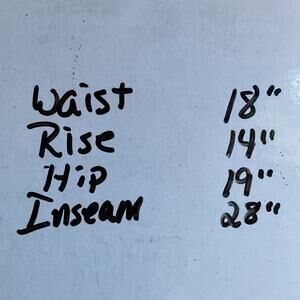 Waist 18"
Rise 14"
Hip 19"
Inseam 28"